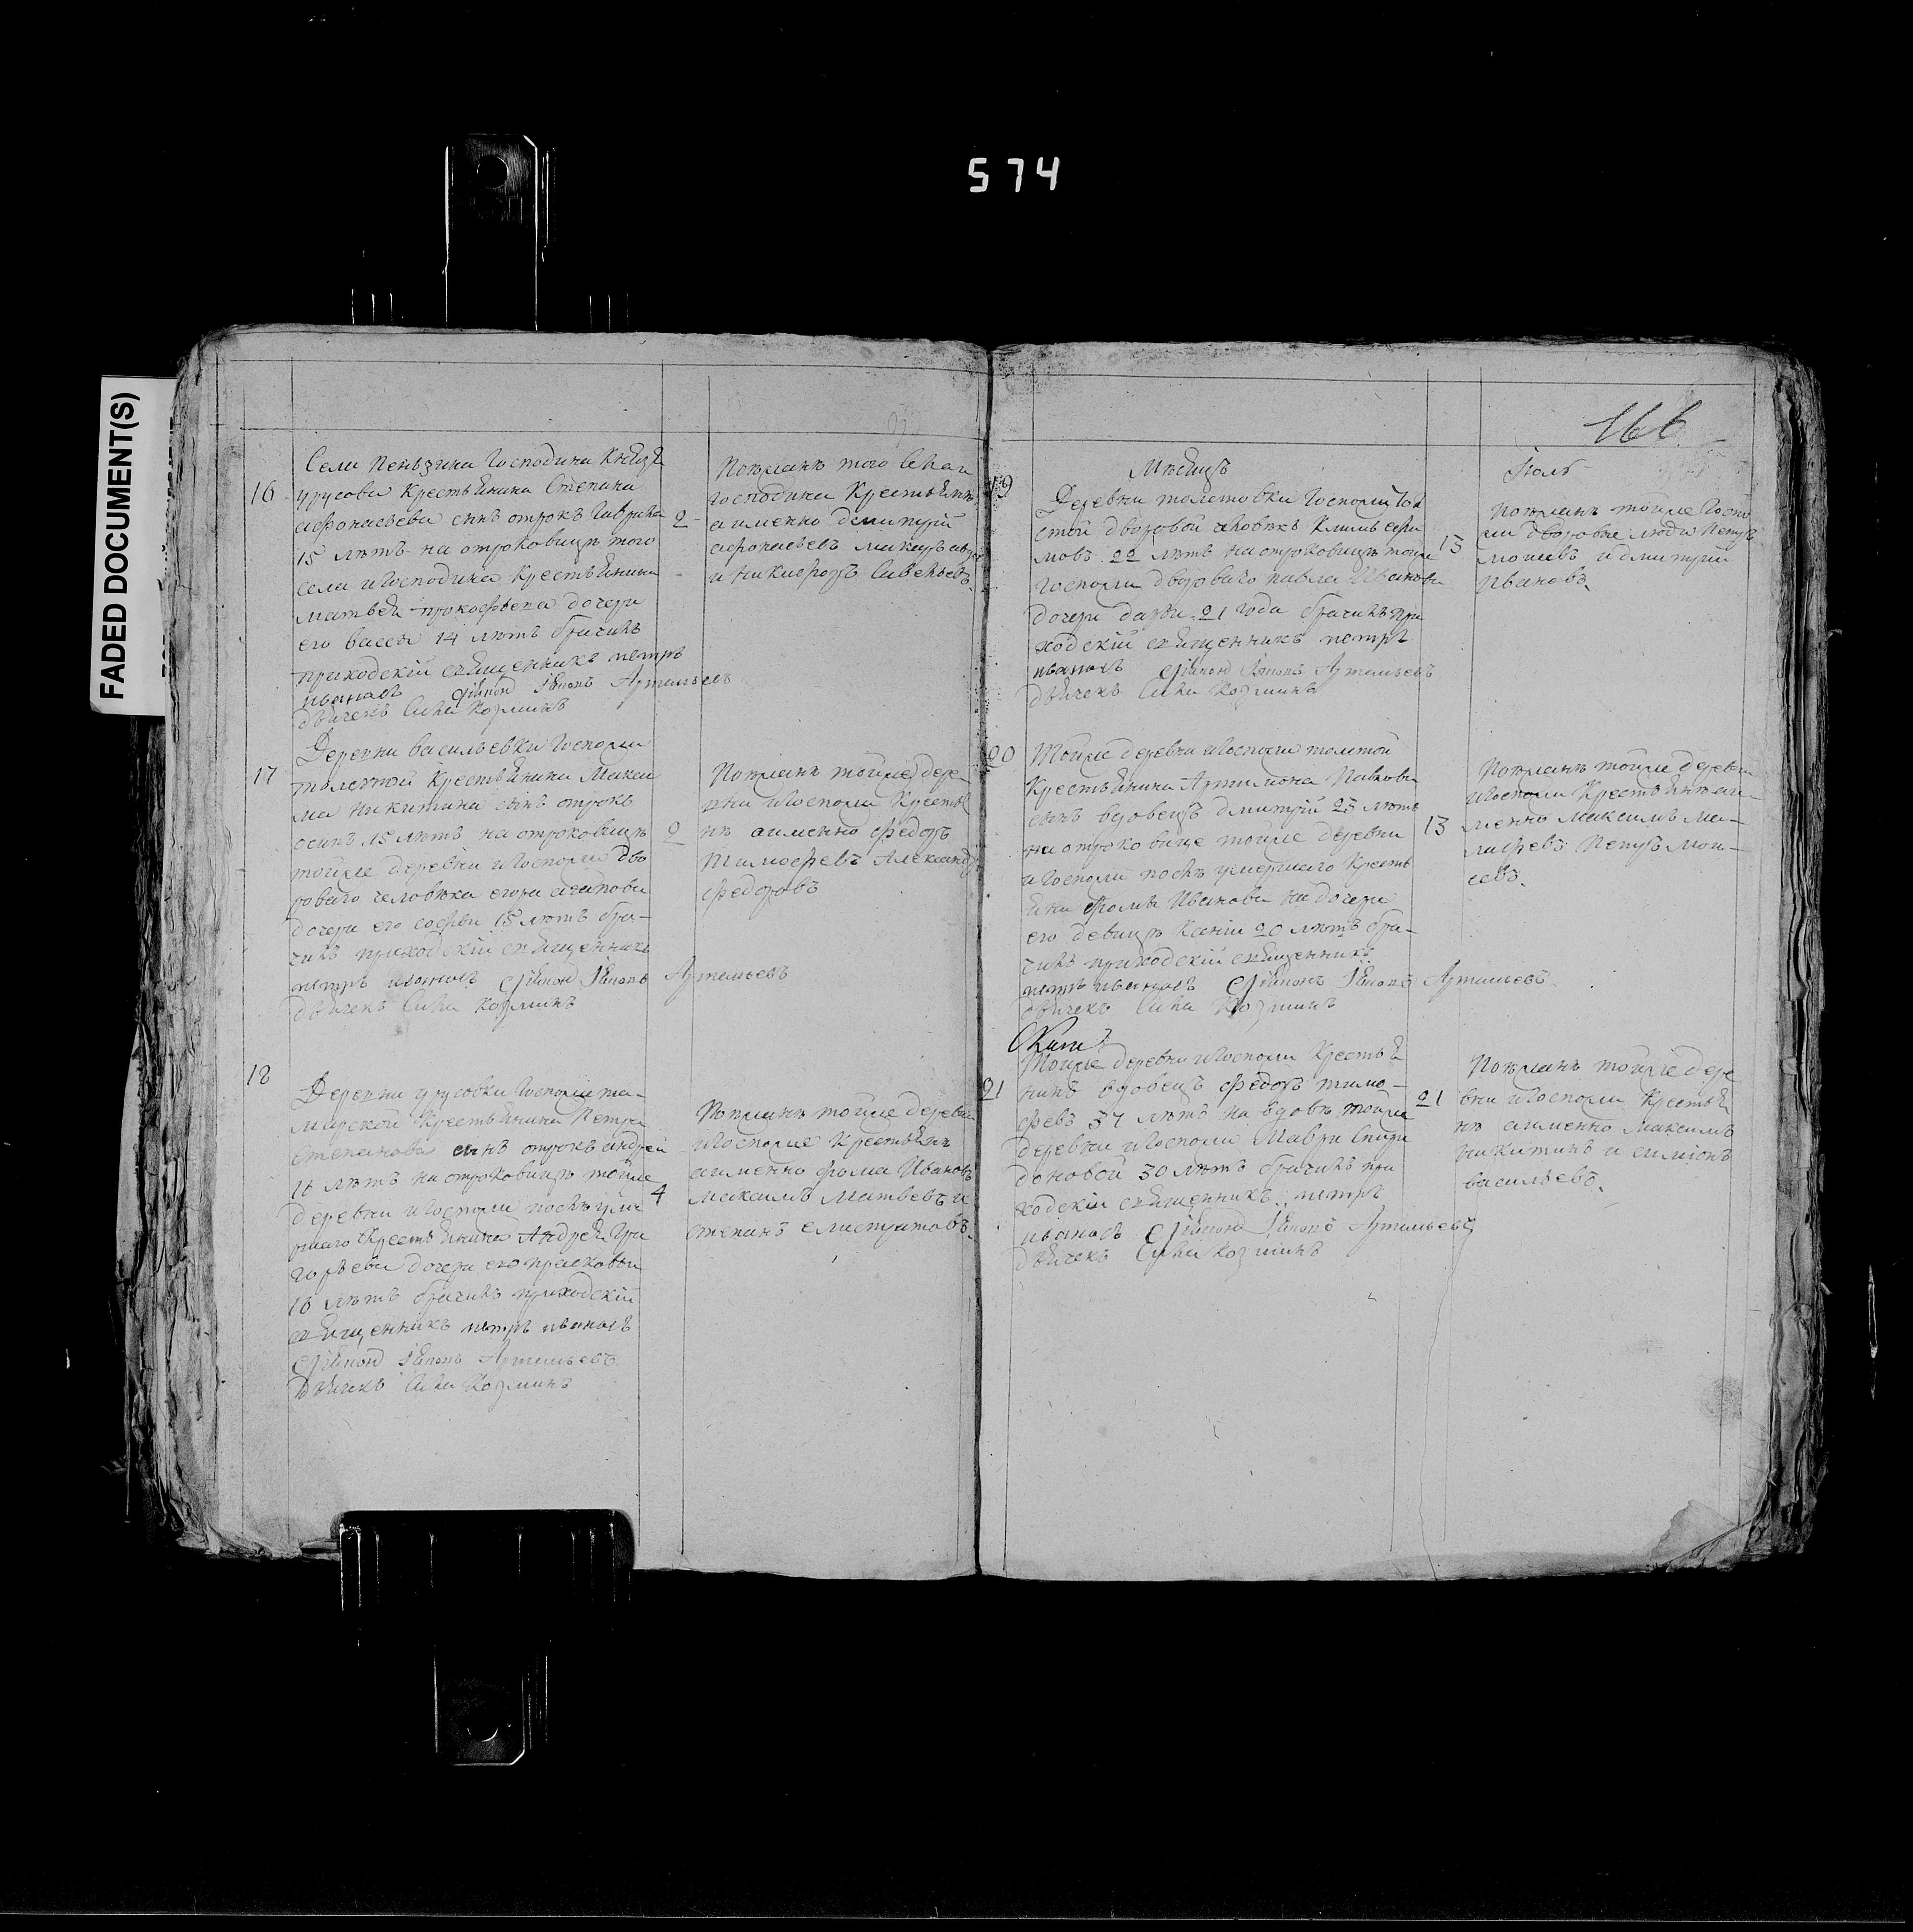 574
FADED DOCUMENT(S)
166
16
Села Пензина Господина Князя
урусова Крестьянина Степана
афонасьева сынъ отрокъ Гаврила
15 лѣтъ на отроковицѣ того
села и Господина Крестьянина
матвея прокофьева дочери
его васси 14 лѣтъ брачилъ
приходскій священникъ петръ
ивановъ Артемьевъ
дьячекъ Сила Козминъ
2
Поѣзжанѣ того Села и
Господина Крестьянѣ
аименно дмитрий
афонасьевъ
и никифоръ Савельевъ
17
Деревни васильевки Госпожи
толстой Крестьянина Макси
ма Никитина сынъ отрокъ
осипъ 15 лѣтъ на отроковицѣ
тойже деревни и Госпожи дво
роваго человѣка егора
дочери его софьи 15 лѣтъ бра-
чилъ приходскій священникъ
петръ ивановъ Артемьевъ
дьячекъ Сила Козминъ
2
Поѣзжанѣ тойже дере
вни и Госпожи Крестья
нѣ аименно федоръ
Тимофеевъ Александръ
федоровъ
18
Деревни урусовки Госпожи
Крестьянина Петра
степанова сынъ отрокъ андрей
16 лѣтъ на отроковицѣ тойже
деревни и Госпожи послѣ уме
ршаго Крестьянина Андрея Гри
горьева дочери его прасковьи
16 лѣтъ брачилъ приходскій
священникъ петръ ивановъ
Артемьевъ
дьячекъ Сила Козминъ
4
Поѣзжанѣ тойже деревни
и Госпожи Крестьянѣ
аименно фома Ивановъ
Максимъ Матвеевъ и
степанъ елистратовъ
Мѣсяцъ
Іюль
19
Деревни толстовки Госпожи Тол
стой дворовой человѣкъ Климъ ефи
мовъ 22 лѣтъ на отроковицѣ тойже
Госпожи двороваго павла Иванова
дочери дарьи 21 года брачилъ при
ходскій священникъ петръ
ивановъ Артемьевъ
дьячекъ Сила Козминъ
13
Поѣзжанѣ тойже Госпо
жи дворовые люди Петръ
и дмитрий
Ивановъ
20
Тойже деревни и Госпожи толстой
Крестьянина Артамона Павлова
сынъ вдовецъ дмитрій 23 лѣтъ
на отроковице тойже деревни
и Госпожи послѣ умершаго Кресть
янина фомы Иванова на дочери
его девицѣ Ксеніи 20 лѣтъ бра-
чилъ приходскій священникъ
петръ ивановъ Артемьевъ
дьячекъ Сила Козминъ
13
Поѣзжанѣ тойже деревни
и Госпожи Крестьянѣ аи-
менно Максимъ
Петръ Мои-
сеевъ
21
Тойже деревни и Госпожи Крестья
нинъ вдовецъ федоръ тимо-
феевъ 37 лѣтъ на вдовѣ тойже
деревни и Госпожи Мавры Спири
доновой 30 лѣтъ брачилъ при
ходскій священникъ петръ
ивановъ Артемьевъ
дьячекъ Сила Козминъ
21
Поѣзжанѣ тойже дере
вни и Госпожи Крестья
нѣ аименно Максимъ
никитинъ и симіонъ
васильевъ